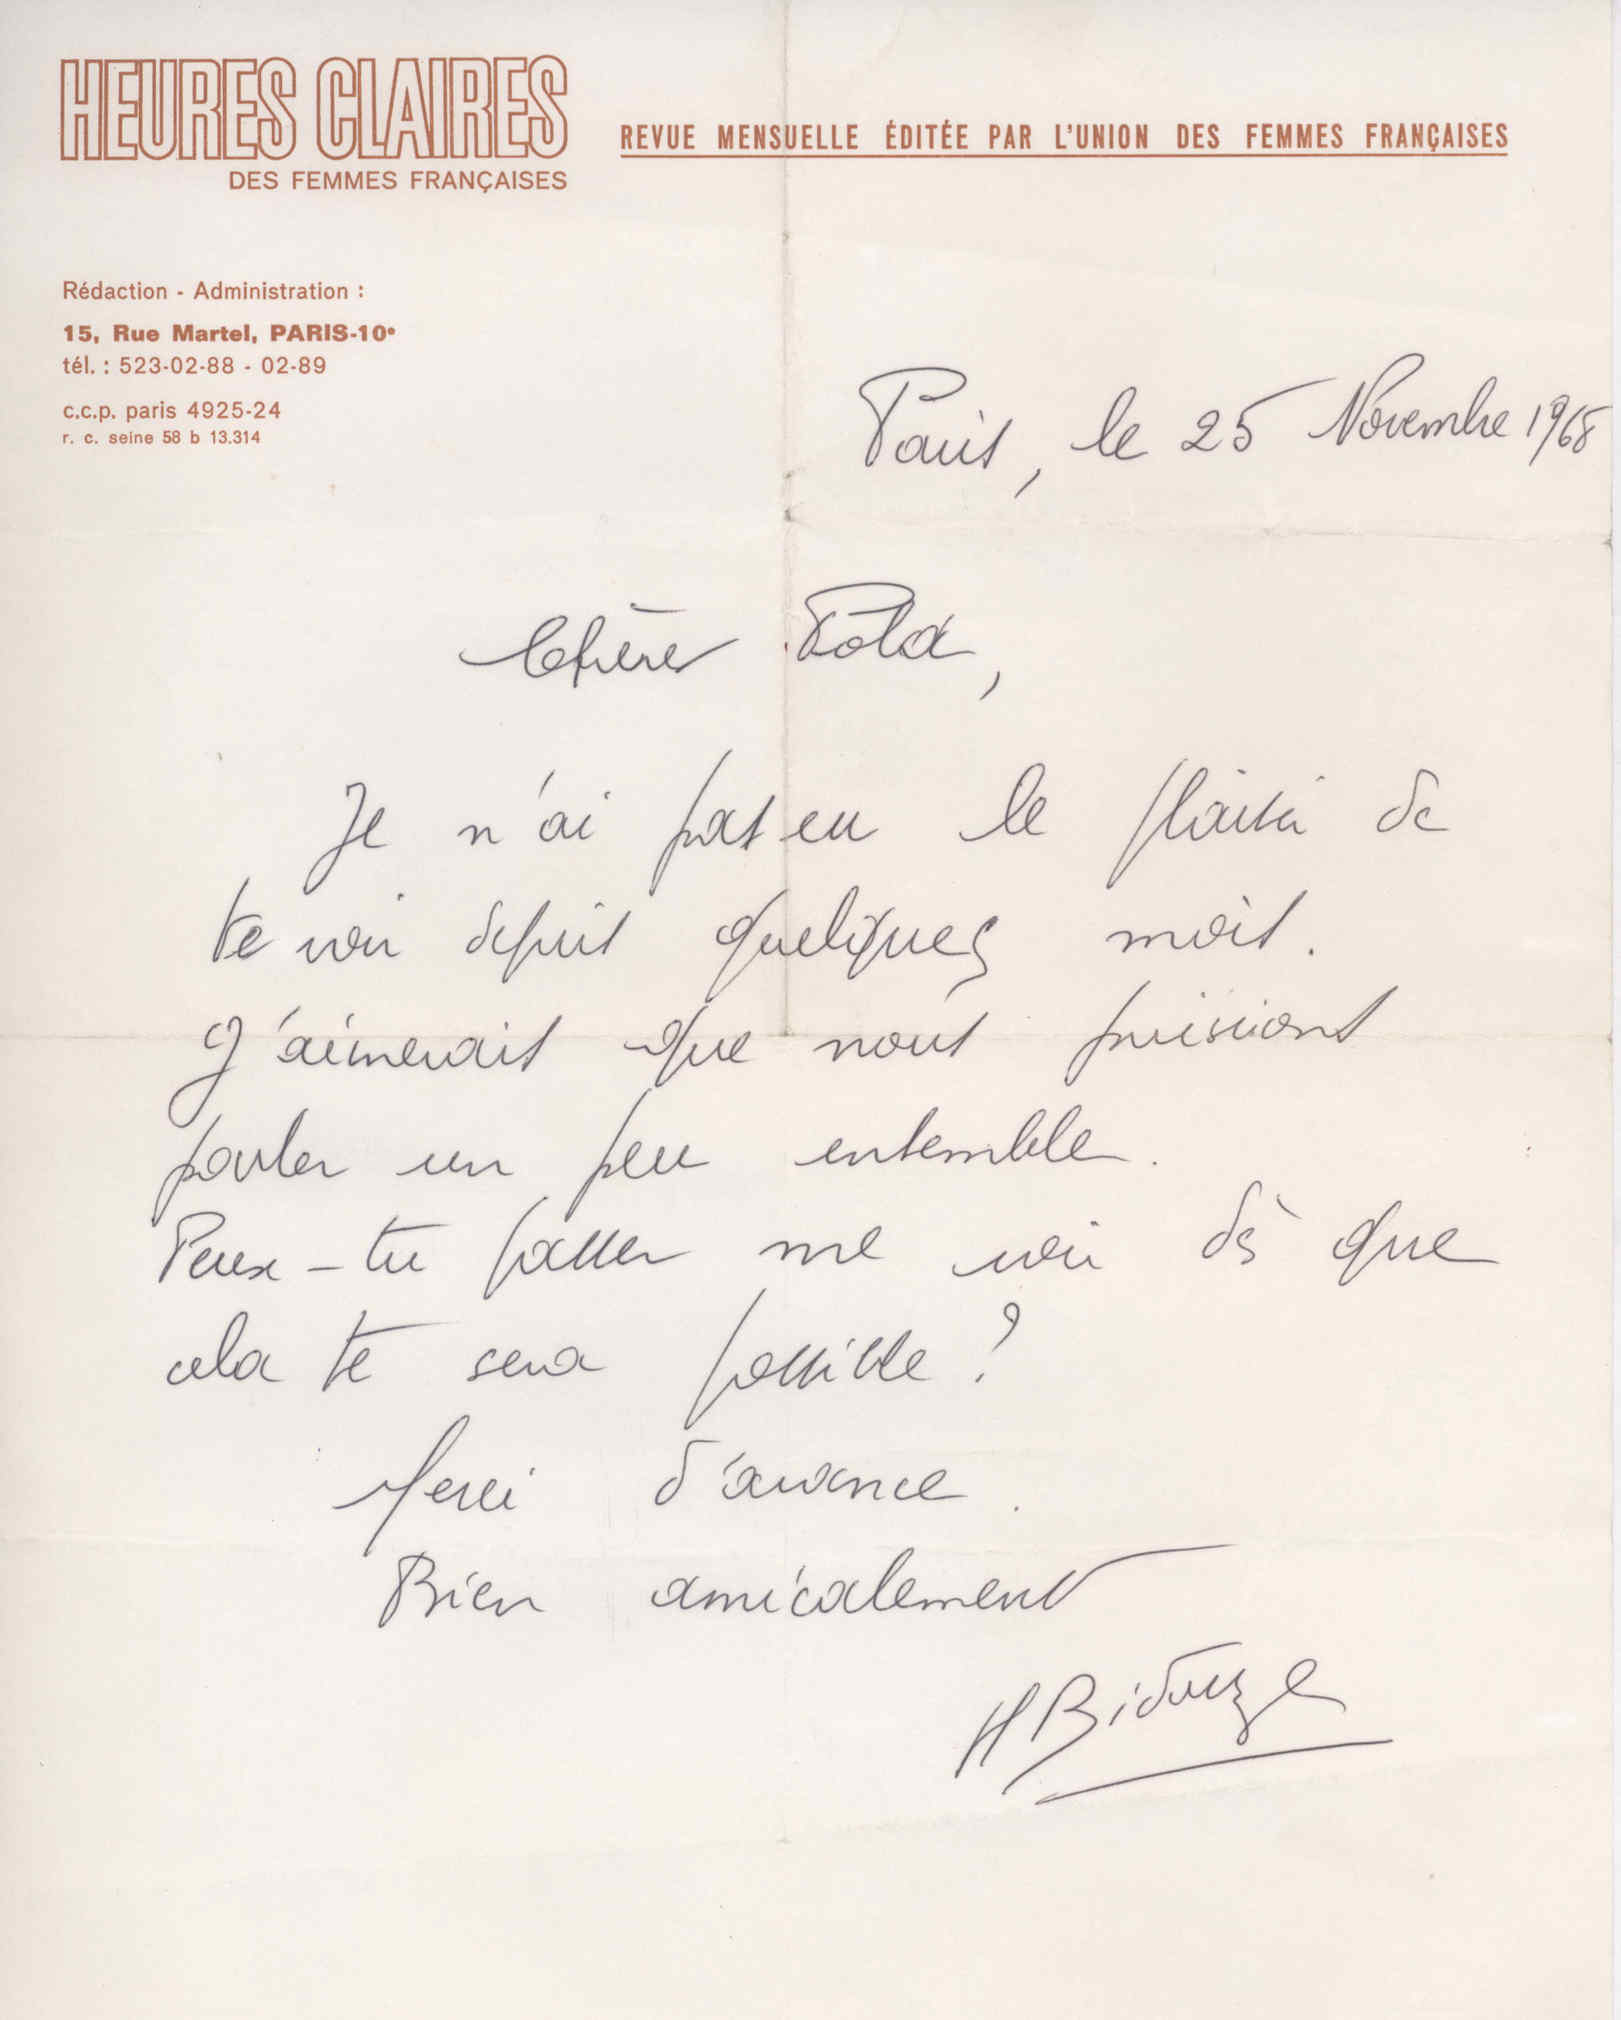 HEURES CLAIRES
DES FEMMES FRANÇAISES
REVUE MENSUELLE ÉDITÉE PAR L'UNION DES FEMMES FRANÇAISES
Rédaction - Administration :
15, Rue Martel, PARIS-10e
tél. : 523-02-88 - 02-89
c.c.p. paris 4925-24
r. c. seine 58 b 13.314
Paris, le 25 Novembre 1968
Chère Pola,
Je n'ai pas eu le plaisir de
te voir depuis quelques mois.
J'aimerais que nous puissions
parler un peu ensemble.
Peux-tu passer me voir dès que
cela te sera possible ?
Merci d'avance.
Bien amicalement
H Bidouze